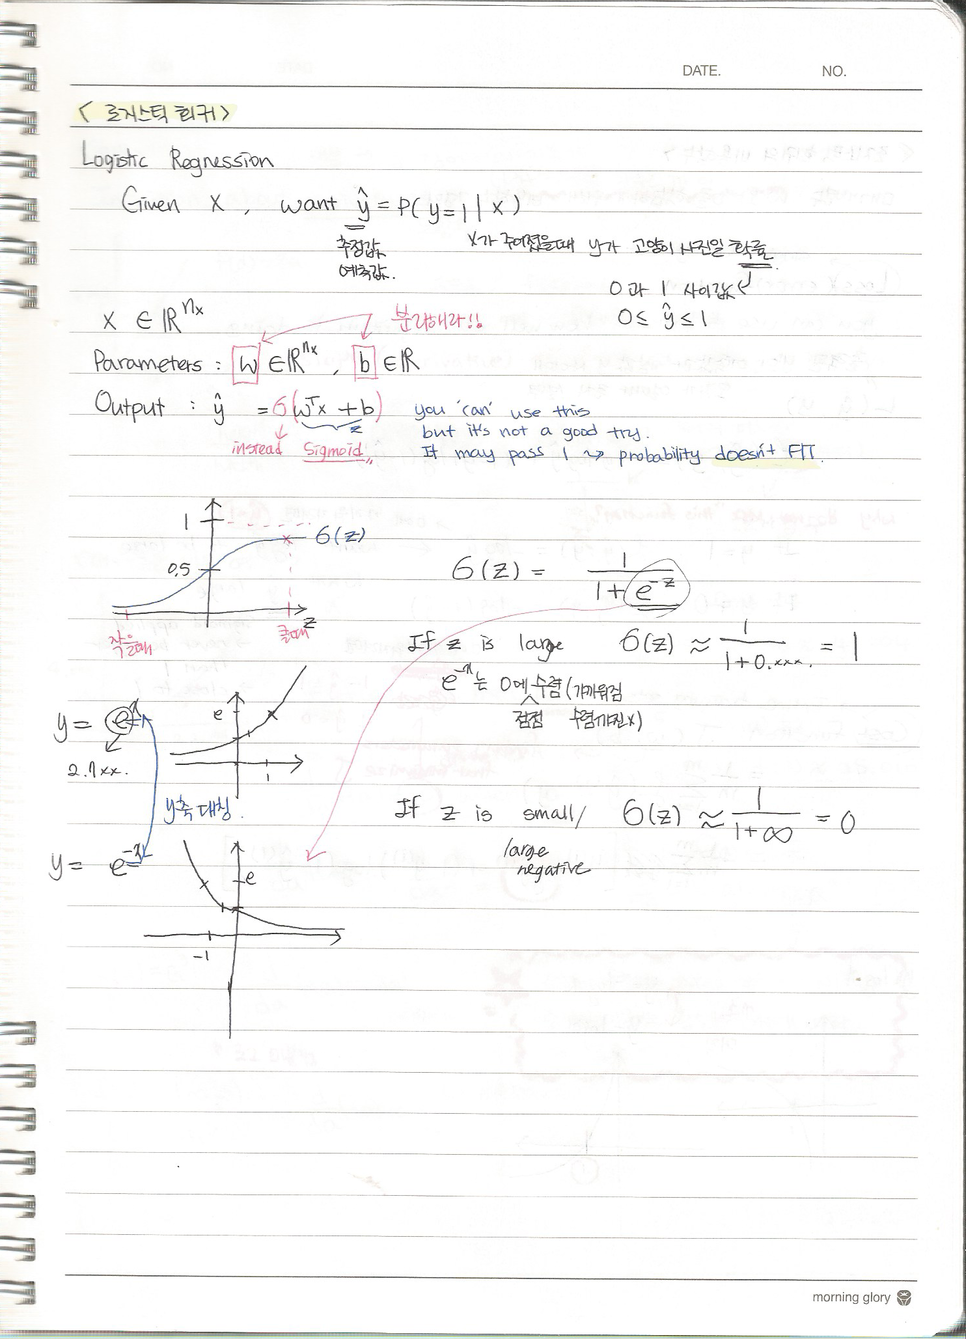 DATE. NO.
< 로지스틱 회귀 >
Logistic Regression
Given X, want ŷ = P(y=1|x)
추정값
예측값.
x가 주어졌을때 y가 고양이 사진일 확률
0과 1 사이값
0 ≤ ŷ ≤ 1
X ∈ ℝⁿˣ
분리해라!!
Parameters : w ∈ ℝⁿˣ, b ∈ ℝ
Output : ŷ = σ(wᵀx + b)
z
instead Sigmoid
you 'can' use this
but it's not a good try.
It may pass 1 ⤳ probability doesn't FIT.
1
σ(z)
0.5
z
작을때
클때
σ(z) = 1 / (1 + e^-z)
If z is large σ(z) ≈ 1 / (1 + 0.xxx.) = 1
e^-x는 0에 수렴 (가까워짐
점점 수렴까진 x)
y = e^x
2.7xx.
e
1
y축 대칭.
If z is small/ σ(z) ≈ 1 / (1 + ∞) = 0
large
negative
y = e^-x
e
1
-1
morning glory